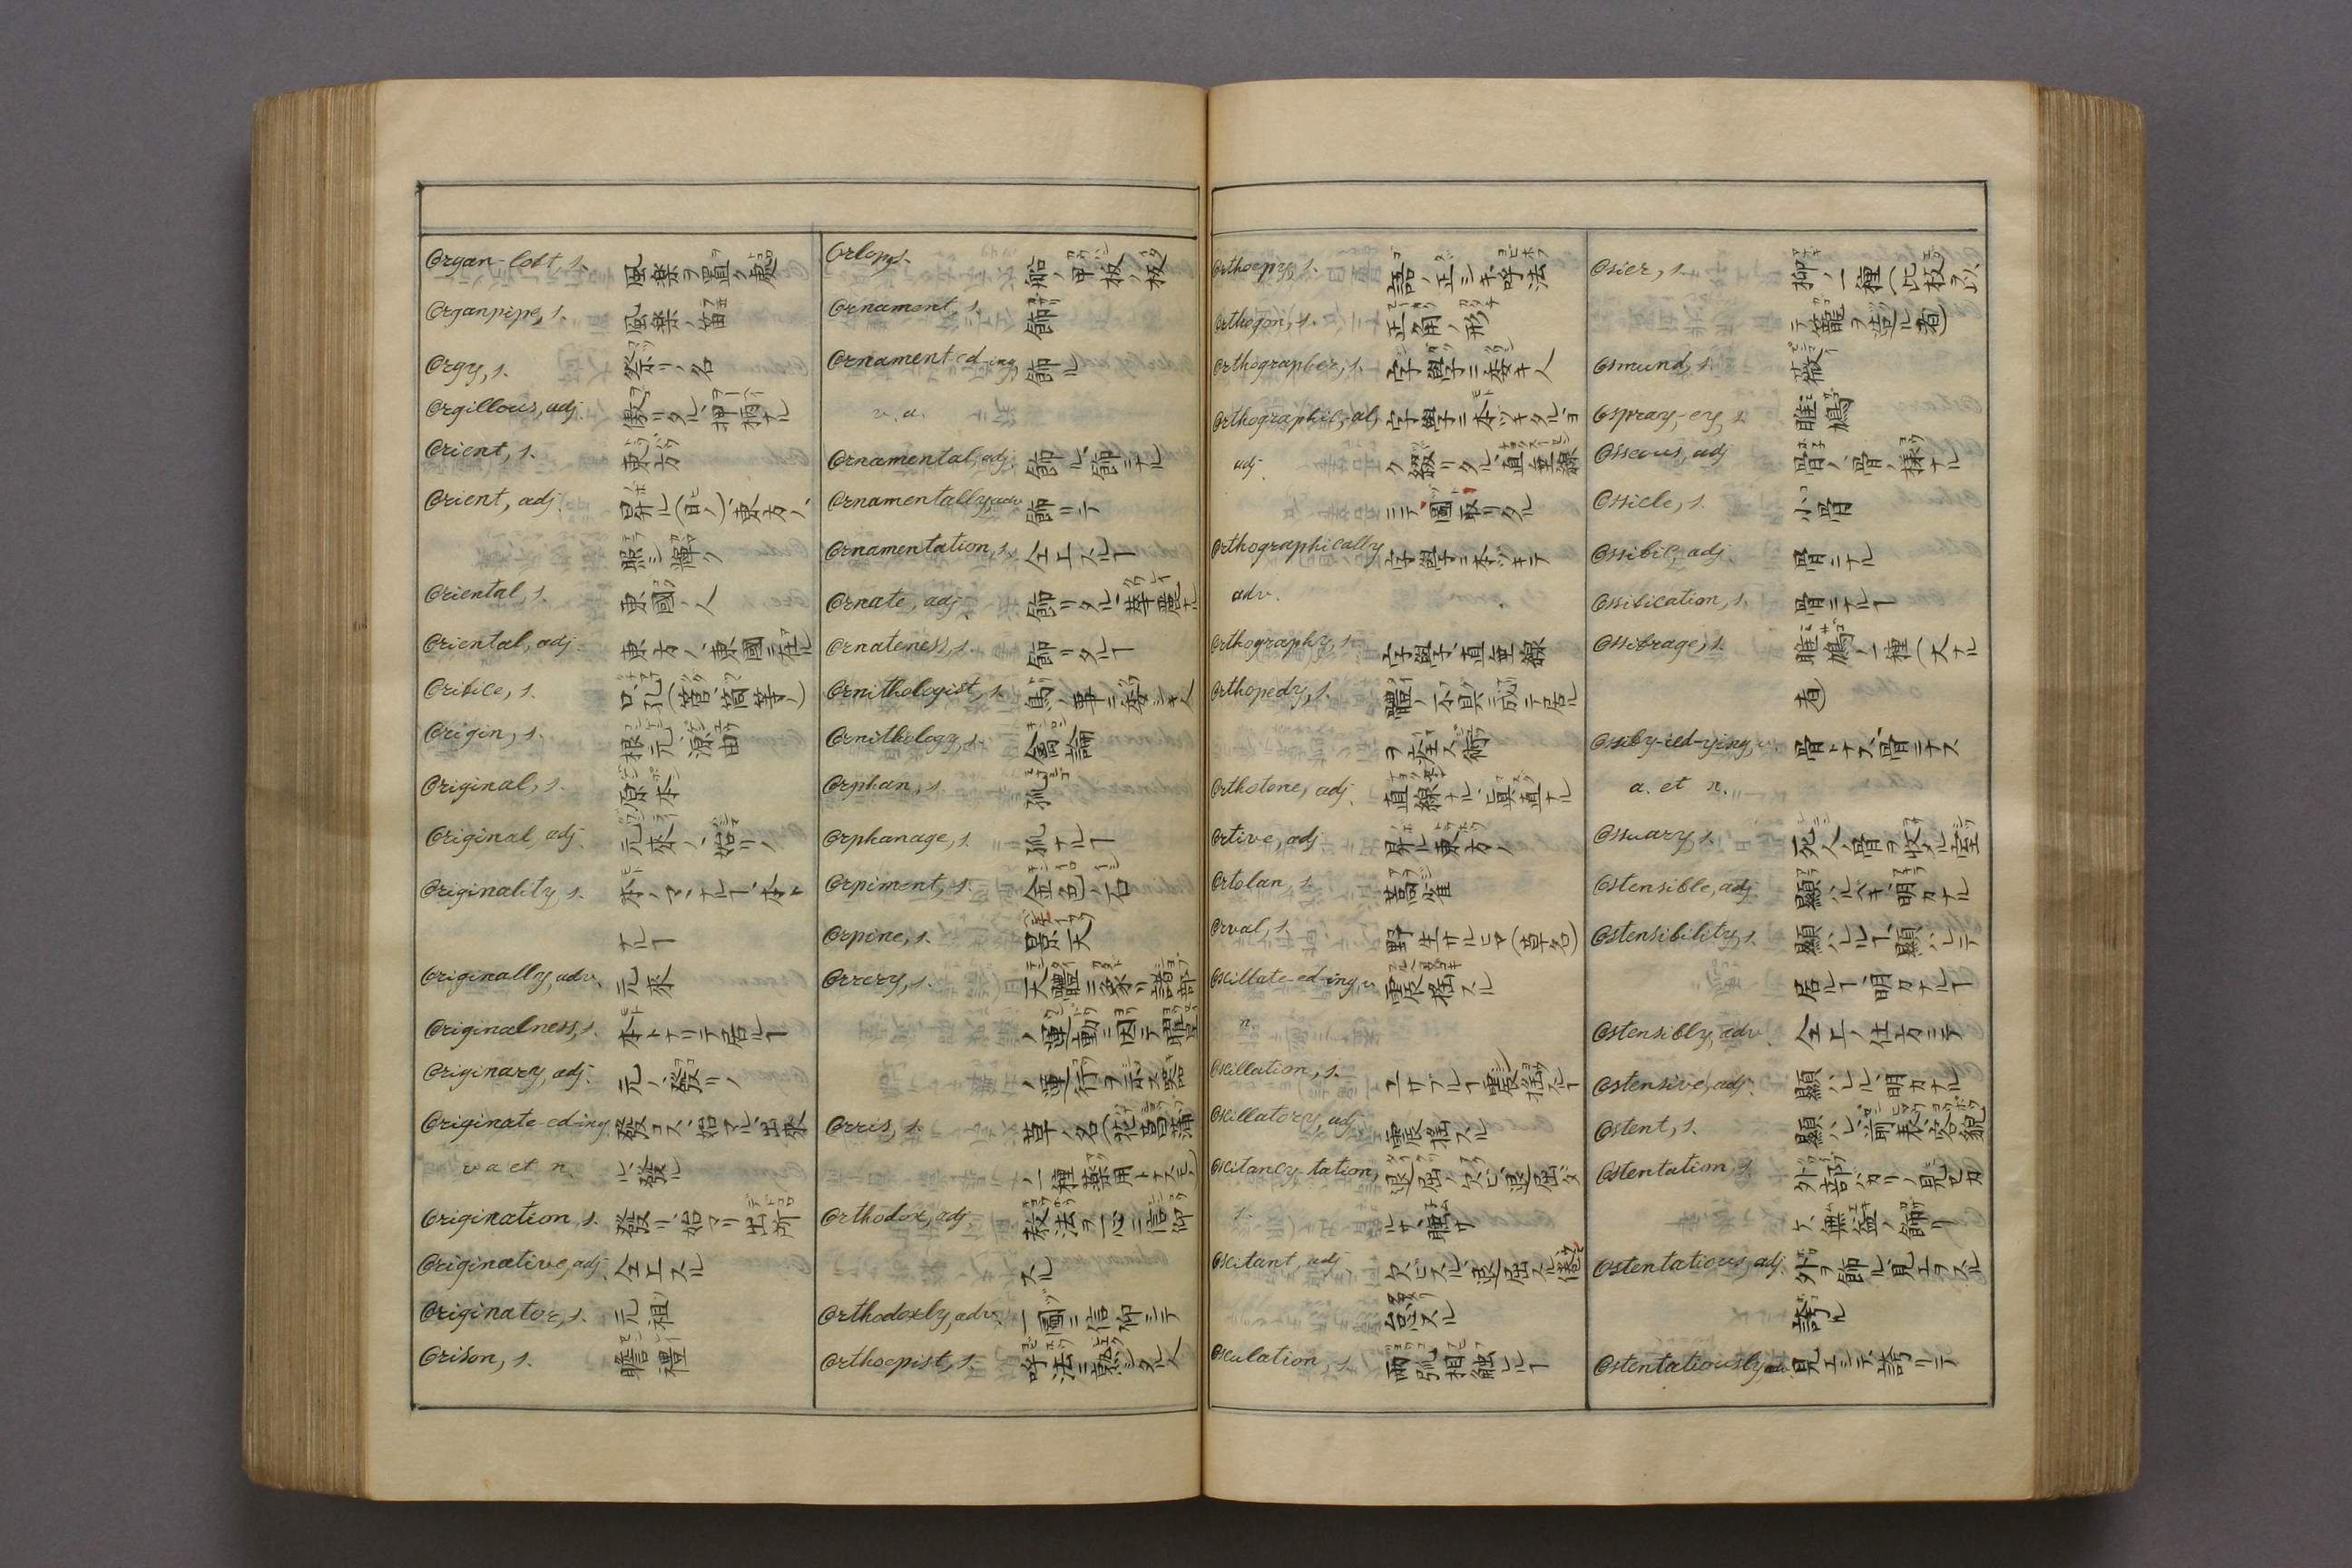 Organ-loft, s. 風樂ヲ置ク處
Organpipe, s. 風樂ノ笛
Orgy, s. 祭リノ名
Orgillous, adj. 傲リタル、押柄ナル
Orient, s. 東方
Orient, adj. 昇ル(日ノ)、東方ノ、
照シ輝ク
Oriental, s. 東國ノ人
Oriental, adj. 東方ノ、東國ニ在ル
Orifice, s. 口、孔(管、筒等ノ)
Origin, s. 根元、源由
Original, s. 原本
Original, adj. 元來ノ、始リノ
Originality, s. 本ノマヽナルヿ、本ト
ナルヿ
Originally, adv. 元來
Originalness, s. 本トナリテ居ルヿ
Originary, adj. 元ノ、發リノ
Originate-ed-ing 發コス、始マル、出來
v. a. et n. ル、發ル
Origination, s. 發リ、始マリ、出所
Originative, adj. 仝上スル
Originator, s. 元祖
Orison, s. 贍禮
Orlop, s. 船ノ甲板ノ板
Ornament, s. 飾
Ornament-ed-ing 飾ル
v. a.
Ornamental, adj. 飾ル、飾ニナル
Ornamentally, adv. 飾リテ
Ornamentation, s. 仝上スルヿ
Ornate, adj. 飾リタル、華麗ナル
Ornateness, s. 飾リタルヿ
Ornithologist, s. 鳥ノ事ニ委シキ人
Ornithology, s. 禽論
Orphan, s. 孤
Orphanage, s. 孤ナルヿ
Orpiment, s. 金色ノ石
Orpine, s. 景天
Orrery, s. 天體ニ象リ諸部
ノ運動ニ因テ
ノ運行ヲ示ス器
Orris, s. 草ノ名(花菖蒲
ノ一種藥用トスモノ)
Orthodox, adj. 教法ヲ一心ニ信仰
スル
Orthodoxly, adv. 一圖ニ信仰シテ
Orthoepist, s. 呼法ニ熟シタル人
Orthoepy, s. 語ノ正シキ呼法
Orthogon, s. 正角ノ形
Orthographer, s. 字學ニ委キ人
Orthographic,-al, 字學ニ本ツキタル、ヨ
adj. ク綴リタル、直垂線
ニテ圖取リタル
Orthographically 字學ニ本ツキテ
adv.
Orthography, s. 字學、直垂線
Orthopedy, s. 體ノ不具ニ成テ居ル
ヲ痊ス術
Orthotone, adj. 直線ナル、眞直ナル
Ortive, adj. 昇ル、東方ノ
Ortolan, s. 蒿雀
Orval, s. 野生サルビヤ(草名)
Oscillate-ed-ing, v. 震搖スル
n.
Oscillation, s. ユサブルヿ、震搖スルヿ
Oscillatory, adj. 震搖スル
Oscitancy-tation, 退屈ノ欠ビ、退屈ヂ
s. ルサ、睡サ
Oscitant, adj. 欠ビスル、退屈スル、倦
怠スル
Osculation, s. 兩弧相觸ルヿ
Osier, s. 柳ノ一種(此枝ヲ以
テ籠ヲ造ル者)
Osmund, s. 薇
Ospray-ery, s. 雎鳩
Osseous, adj. 骨ノ、骨ノ樣ナル
Ossicle, s. 小骨
Ossific, adj. 骨ニナル
Ossification, s. 骨ニナルヿ
Ossifrage, s. 雎鳩ノ一種(大ナル
者)
Ossify-ied-ying, v. 骨トナス、骨ニナス
a. et n.
Ossuary, s. 死人ノ骨ヲ收ル室
Ostensible, adj. 顯ハルベキ、明カナル
Ostensibility, s. 顯ハルルヿ、顯ハレテ
居ルヿ、明カナルヿ
Ostensibly, adv. 仝上ノ仕方ニテ
Ostensive, adj. 顯ハルル、明カナル
Ostent, s. 顯ハレ、前表、容貌
Ostentation, s. 外部バカリノ見セカ
ケ、無益ノ飾リ
Ostentatious, adj. 外ヲ飾ル、見エヲスル
誇ル
Ostentatiously, adv. 見エシテ、誇リテ